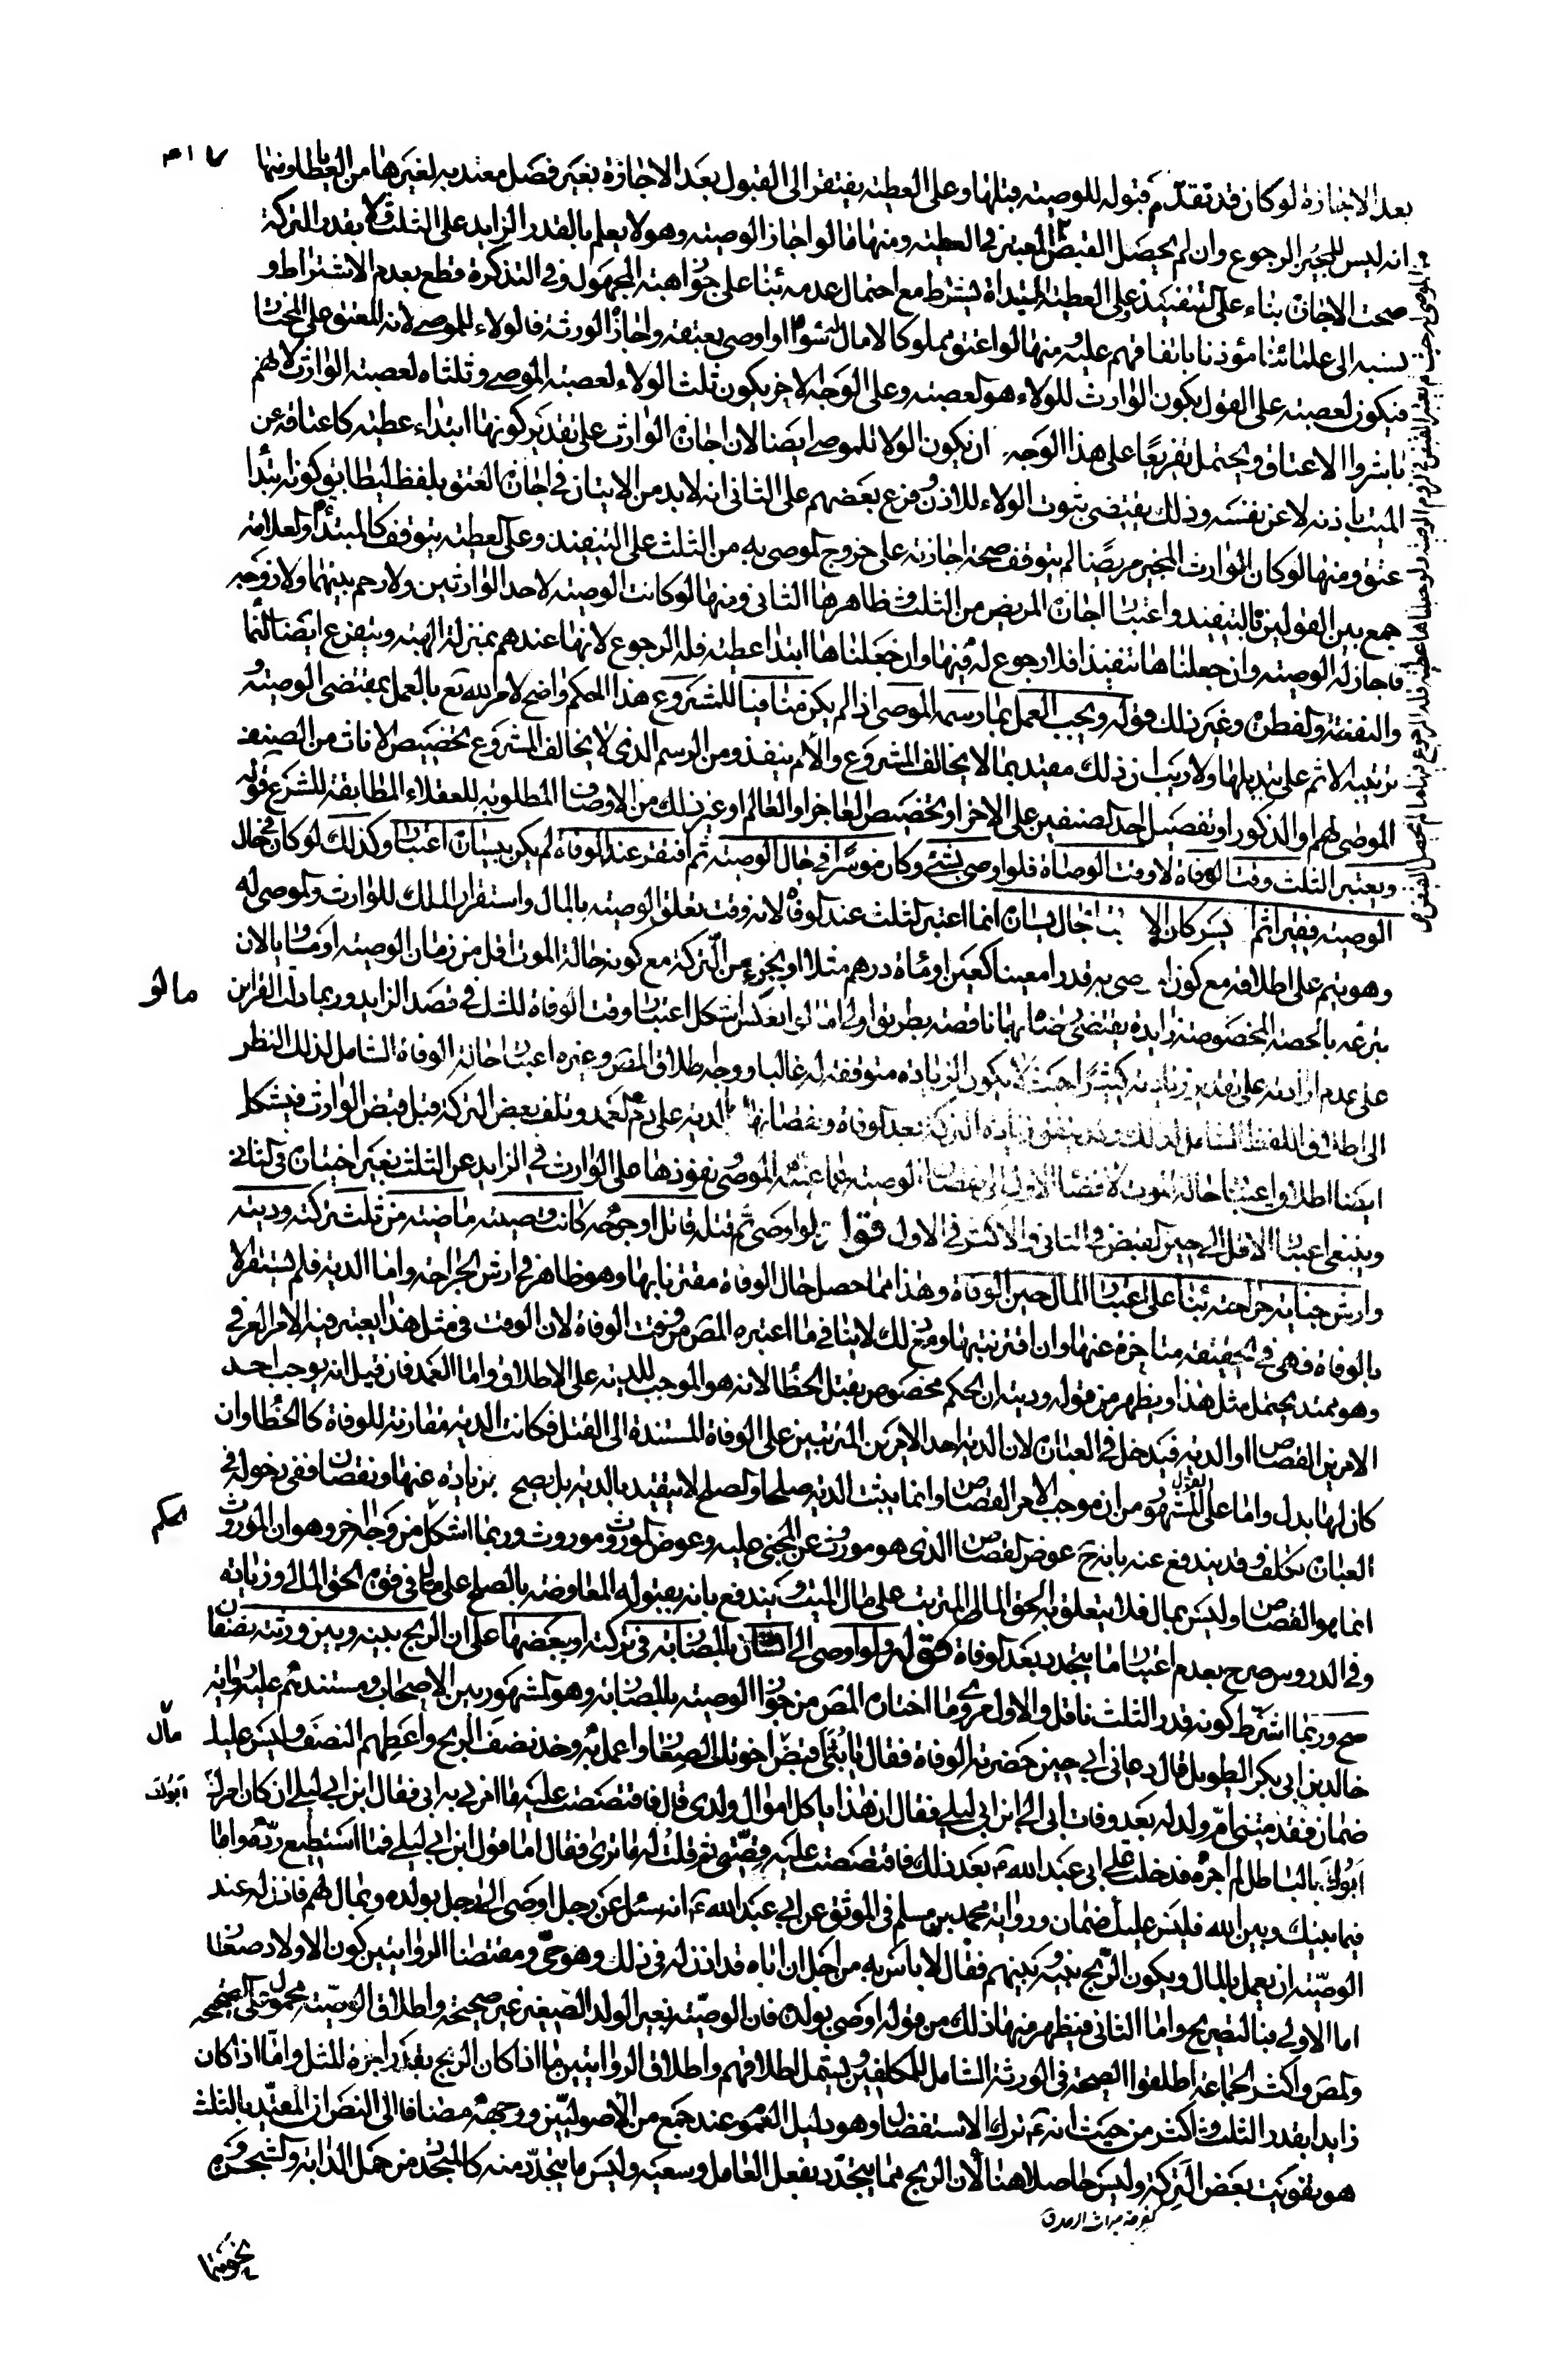 بعد الاجازة لو كان قد تقدم قبوله للوصيته قبلها وعلى العطيه يفتقر الى القبول بعد الاجازة بغير فصل معتد به لغيرها من العطايا ومنها
انه ليس للمجيز الرجوع وان لم يحصل القبض المعتبر في العطيه ومنها ما لو اجاز الوصيته وهو لا يعلم بالقدر الزايد على الثلث ولا بقدر التركة
صحت الاجازة بناء على التنفيذ وعلى العطية المبتداة يشترط مع احتمال عدمه بناء على جواز هبته المجهول وفي التذكرة قطع بعدم الاشتراط و
نسبه الى علمائنا مؤذنا باتفاقهم عليه ومنها لو اعتق مملوكا لا مال له سواه او اوصى بعتقه واجاز الورثة فالولاء للموصي لانه المعتق على المختار
فيكون لعصبته على القول بكون الوارث للولاء هو العصبته وعلى الوجه الاخر يكون ثلث الولاء لعصبته الموصي وثلثاه لعصبته الوارث لانهم
باشروا الاعتاق ويحتمل تفريعًا على هذا الوجه ان يكون الولاء للموصي ايضا لان اجازة الوارث على تقدير كونها ابتداء عطيه كاعتاقه عن
الميت باذنه لا عن نفسه وذلك يقتضي ثبوت الولاء للاذن وفرع بعضهم على الثاني انه لابد من الاتيان في اجازة العتق بلفظ ليطابق كونه مبتدأ
عتق ومنها لو كان الوارث المجيز مريضًا لم يتوقف صحة اجازته على خروج الموصى به من الثلث على التنفيذ وعلى العطيه يتوقف كالمبتدأ ولعلامة
جمع بين القولين فالتنفيذ واعتبار اجازة المريض من الثلث وظاهرها الثاني ومنها لو كانت الوصيته لاحد الوارثين ولا رحم بينهما ولا زوجيه
فاجاز له الوصيته وان جعلناها تنفيذا فلا رجوع له فيها وان جعلناها ابتداء عطيته فله الرجوع لانها عندهم بمنزلة الهبته ويتفرع ايضا النما
والنفقة والفطرة وغير ذلك قوله ويجب العمل بما رسمه الموصى اذا لم يكن منافيا للشروع هذا الحكم واضح لامر الله تع بالعمل بمقتضى الوصيته و
ترتيبه الاثم على تبديلها ولا ريب ان ذلك مقيد بما لا يخالف المشروع والا لم ينفذ ومن الرسم الذي لا يخالف المشروع تخصيص الاناث من الصنف
الموصى لهم او الذكور او تفضيل احد الصنفين على الاخر او تخصيص العاجز او العالم او غير ذلك من الاوصاف المطلوبه للعقلاء المطابقة للشرع قوله
ويعتبر الثلث وقت الوفاة لا وقت الوصاة فلو اوصى بشيء وكان موسرا في حال الوصيته ثم افتقر عند الوفاة لم يكن بيساره اعتبار وكذلك لو كان في حال
الوصيته فقيرا ثم يسر كان الا بحال يساره انما اعتبر الثلث عند الوفاة لانه وقت تعلق الوصيته بالمال واستقرار الملك للوارث والموصى له
وهو يتم على اطلاقه مع كون صى به قدرا معينا كعين او مأة درهم مثلا او بجزء من التركة مع كونه حالة الموت اقل من زمان الوصيته او مساويا لان
تبرعه بالحصة المخصوصته زايدة يقتضي رضاه بها ناقصته بطريق اولى اما لو انعكس اشكل اعتبار وقت الوفاة للشك في قصد الزايد وربما دلت القراين
على عدم ارادته على تقدير زيادته كثيرًا حيث لا يكون الزيادة متوقعته له غالبا ووجه اطلاق المص وغيره اعتبار حالة الوفاة الشامل لذلك النظر
الى اطلاق اللفظ الشامل لذلك وقد يتفق زيادة التركة بعد الوفاة ونقصانها الديه على دم العمد وتلف بعض التركة قبل قبض الوارث فيشكل
ايضا اطلاق اعتبار حالة الموت لافضاء الاول الى نقصان الوصيته عما عينه الموصى ونفوذها على الوارث في الزايد عن الثلث بغير اختياره في الثاني
وينبغي اعتبار الاقل الى حين القبض في الثاني والاكثر في الاول قوله لو اوصى ثم قتله قاتل او جرحه كانت وصيته ماضيته من ثلث تركته وديته
وارش جنايته جراحته بناء على اعتبار المال حين الوفاة وهذا مما حصل حال الوفاة مقترنا بها وهو ظاهر في ارش الجراحته واما الديه فلم تستقر الا
بالوفاة فهي في الحقيقته متاخرة عنها وان اقترنته بها ومع ذلك لا ينافي ما اعتبره المص من وقت الوفاة لان الوقت في مثل هذا يعتبر فيه الامر العرفي
وهو ممتد يحتمل مثل هذا ويظهر من قوله وديته ان الحكم مخصوص بقتل الخطأ لانه هو الموجب للديه على الاطلاق واما العمد فان قيل انه يوجب احد
الامرين القصاص او الديه فيدخل في العبارة لان الديه احد الامرين المترتبين على الوفاة المستندة الى القتل فكانت الديه مقارنه للوفاة كالخطا وان
كان لها بدل واما على القول المشهور من ان موجب الامر القصاص وانما يثبت الديه صلحا والصلح لا يتقيد بالديه بل يصح بزيادة عنها ونقصان ففي دخوله في
العبارة تكلف وقد يندفع عنه بانه ح عوض القصاص الذي هو موروث عن المجني عليه وعوض الموروث موروث وربما اشكل من وجه اخر وهو ان الموروث
انما هو القصاص وليس بمال فلا يتعلق به الحق المالي المترتب على مال الميت ويندفع بانه بقبوله المعاوضته بالصلح على مال في قوة الحق المالي وزيادته
وفي الدروس صرح بعدم اعتبار ما يتجدد بعد الوفاة قوله ولو اوصى الى انسان بالمضاربته في تركته او ببعضها على ان الربح بينه وبين ورثته نصفان
صح وربما اشترط كونه قدر الثلث فاقل والاول مروي ما اختاره المص من جواز الوصيته بالمضاربته وهو المشهور بين الاصحاب ومستندهم عليه روايته
خالد بن ابي بكر الطويل قال دعاني ابي حين حضرته الوفاة فقال يا بني اقبض مال اخوتك الصغار واعمل به وخذ نصف الربح واعطهم النصف وليس عليك
ضمان فقدمتني ام ولد له بعد وفات ابي الى ابن ابي ليلى فقال ان هذا ياكل اموال ولدي قال فاقتصصت عليه ما امرني به ابي فقال ابن ابي ليلى ان كان امرك
ابوك بالباطل لم اجزه فدخلت على ابي عبد الله ع بعد ذلك فاقتصصت عليه قصتي ثم قلت له ما ترى فقال اما قول ابن ابي ليلى فما استطيع رده واما
فيما بينك وبين الله فليس عليك ضمان ورواية محمد بن مسلم في الموثق عن ابي عبد الله ع انه سئل عن رجل اوصى الى رجل بولده وبمال لهم فاذن له عند
الوصيته ان يعمل بالمال ويكون الربح بينه وبينهم فقال لا باس به من اجل ان اباه قد اذن له في ذلك وهو حي ومقتضى الروايتين كون الاولاد صغارا
اما الاولى فبالتصريح واما الثاني فيظهر منها ذلك من قوله اوصى بولده فان الوصيته بغير الولد الصغير غير صحيحة واطلاق الوصيته محمول على الصحيحه
والمص واكثر الجماعة اطلقوا الصحة في الورثة الشامل للمكلفين ويشمل اطلاقهم واطلاق الروايتين ما اذا كان الربح بقدر اجرة المثل واما اذا كان
زايدا بقدر الثلث واكثر من حيث انه ع ترك الاستفصال وهو دليل العموم عند جمع من الاصوليين ووجهه مضافا الى النص ان المقيد بالثلث
هو تفويت بعض التركة وليس حاصلا هنا لان الربح مما يتجدد بفعل العامل وسعيه وليس ما يتجدد منه كالمتجدد من حمل الدابة والشجرة
مالو
الحكم
مال
ابوك